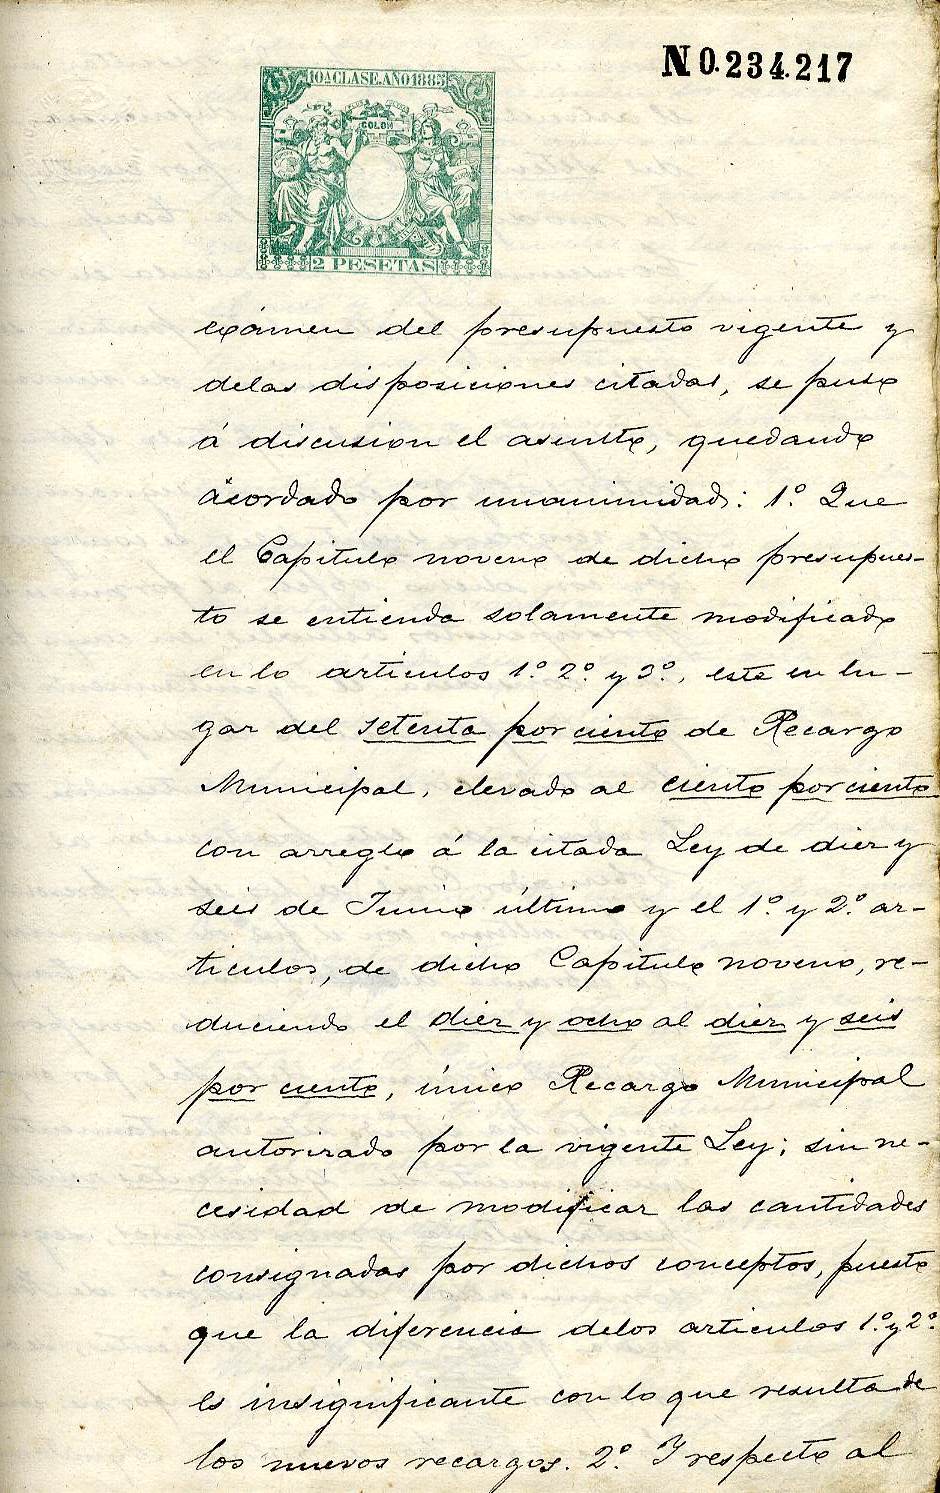 N 0.234.217
10ª CLASE. AÑO 1885
COLON
2 PESETAS
exámen del presupuesto vigente y
delas disposiciones citadas, se puso
á discusion el asunto, quedando
acordado por unanimidad: 1.º Que
el Capitulo noveno de dicho presupues-
to se entienda solamente modificado
en lo articulos 1.º 2.º y 3.º, este en lu-
gar del setenta por ciento de Recargo
Municipal, elevado al ciento por ciento
con arreglo á la citada Ley de diez y
seis de Junio último y el 1.º y 2.º ar-
ticulos, de dicho Capitulo noveno, re-
duciendo el diez y ocho al diez y seis
por ciento, único Recargo Municipal
autorizado por la vigente Ley; sin ne-
cesidad de modificar las cantidades
consignadas por dichos conceptos, puesto
que la diferencia delos articulos 1.º y 2.º
es insignificante con lo que resulta de
los nuevos recargos. 2.º Y respecto al